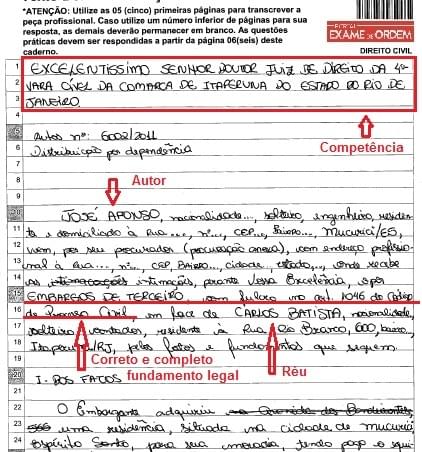 *ATENÇÃO: Utilize as 05 (cinco) primeiras páginas para transcrever a
peça profissional. Caso utilize um número inferior de páginas para sua
resposta, as demais deverão permanecer em branco. As questões
práticas devem ser respondidas a partir da página 06(seis) deste
caderno.
PORTAL
EXAME DE ORDEM
DIREITO CIVIL
1 EXCELENTÍSSIMO SENHOR DOUTOR JUIZ DE DIREITO DA 4ª
2 VARA CÍVEL DA COMARCA DE ITAPERUNA DO ESTADO DO RIO DE
3 JANEIRO.
4
Competência
5 Autos nº: 6002/2011
6 Distribuição por dependência
7
8
Autor
9
10 JOSÉ AFONSO, nacionalidade..., solteiro, engenheiro, residen-
11 te e domiciliado à Rua..., nº..., CEP..., Bairro..., Mucurici/ES,
12 vem, por seu procurador (procuração anexa), com endereço profissio-
13 nal à Rua..., nº..., CEP, BAIRRO..., cidade, estado..., onde recebe
14 as intimações, perante Vossa Excelência, opor
15 EMBARGOS DE TERCEIRO com fulcro no art. 1046 do Código
16 de Processo Civil, em face de CARLOS BATISTA, nacionalidade,
17 solteiro, contador, residente à Rua Rio Branco, 600, bairro,
18 Itaperuna/RJ, pelos fatos e fundamentos que seguem.
Correto e completo
fundamento legal
Rèu
19
20 I. DOS FATOS
21
22 O Embargante adquiriu
23 uma residência, situada na cidade de Mucurici,
24 Espírito Santo, para sua moradia, tendo pago o